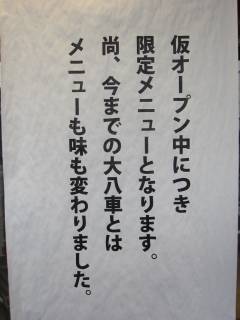 仮オープン中につき
限定メニューとなります。
尚、今までの大八車とは
メニューも味も変わりました。